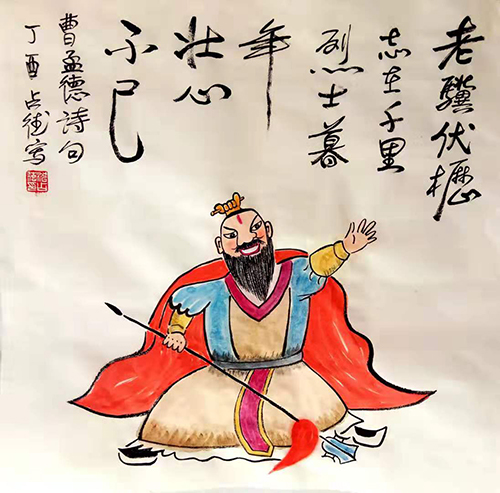 老驥伏櫪
志在千里
烈士暮
年
壯心
不已
曹孟德詩句
丁酉占德写